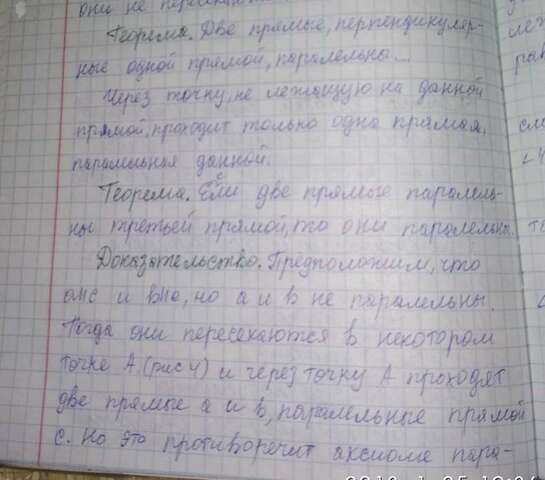 они не пересекаются
Теорема. Две прямые, перпендикуляр-
ные одной прямой, паралельны...
Через точку, не лежащую на данной
прямой, проходит только одна прямая,
паралельная данной.
Теорема. Если две прямые паралель-
ны третьей прямой, то они паралельны.
Доказательство. Предположим, что
аııс и вııа, но а и в не паралельны.
Тогда они пересекаются в некотором
точке А (рис 4) и через точку А проходят
две прямые а и в, паралельные прямой
с. Но это противоречит аксиоме пара-